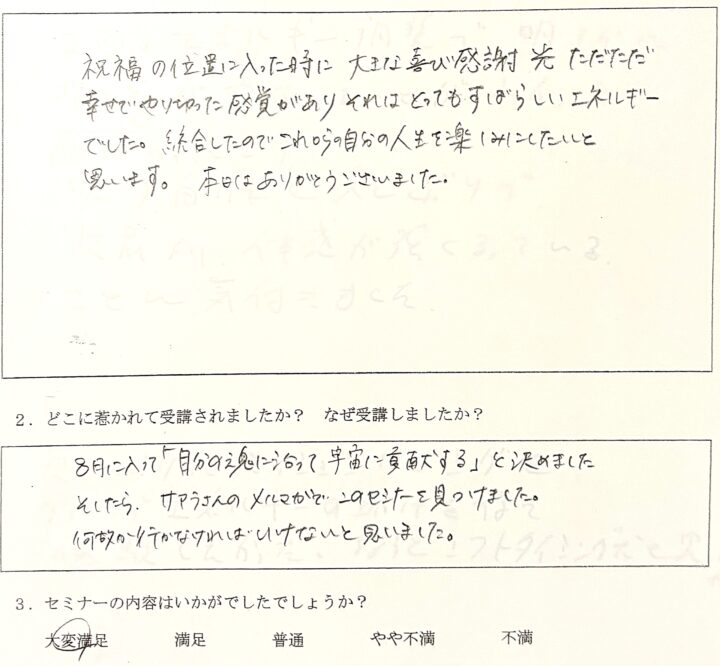 祝福の位置に入った時に 大きな喜び感謝 光 ただただ
幸せでやり切った感覚があり それはとってもすばらしいエネルギー
でした。統合したのでこれからの自分の人生を楽しみにしたいと
思います。 本日はありがとうございました。
2．どこに惹かれて受講されましたか？ なぜ受講しましたか？
8月に入って「自分の魂に沿って宇宙に貢献する」と決めました
そしたら、サアラさんのメルマガでこのセミナーを見つけました。
何故か行かなければいけないと思いました。
3．セミナーの内容はいかがでしたでしょうか？
大変満足 満足 普通 やや不満 不満